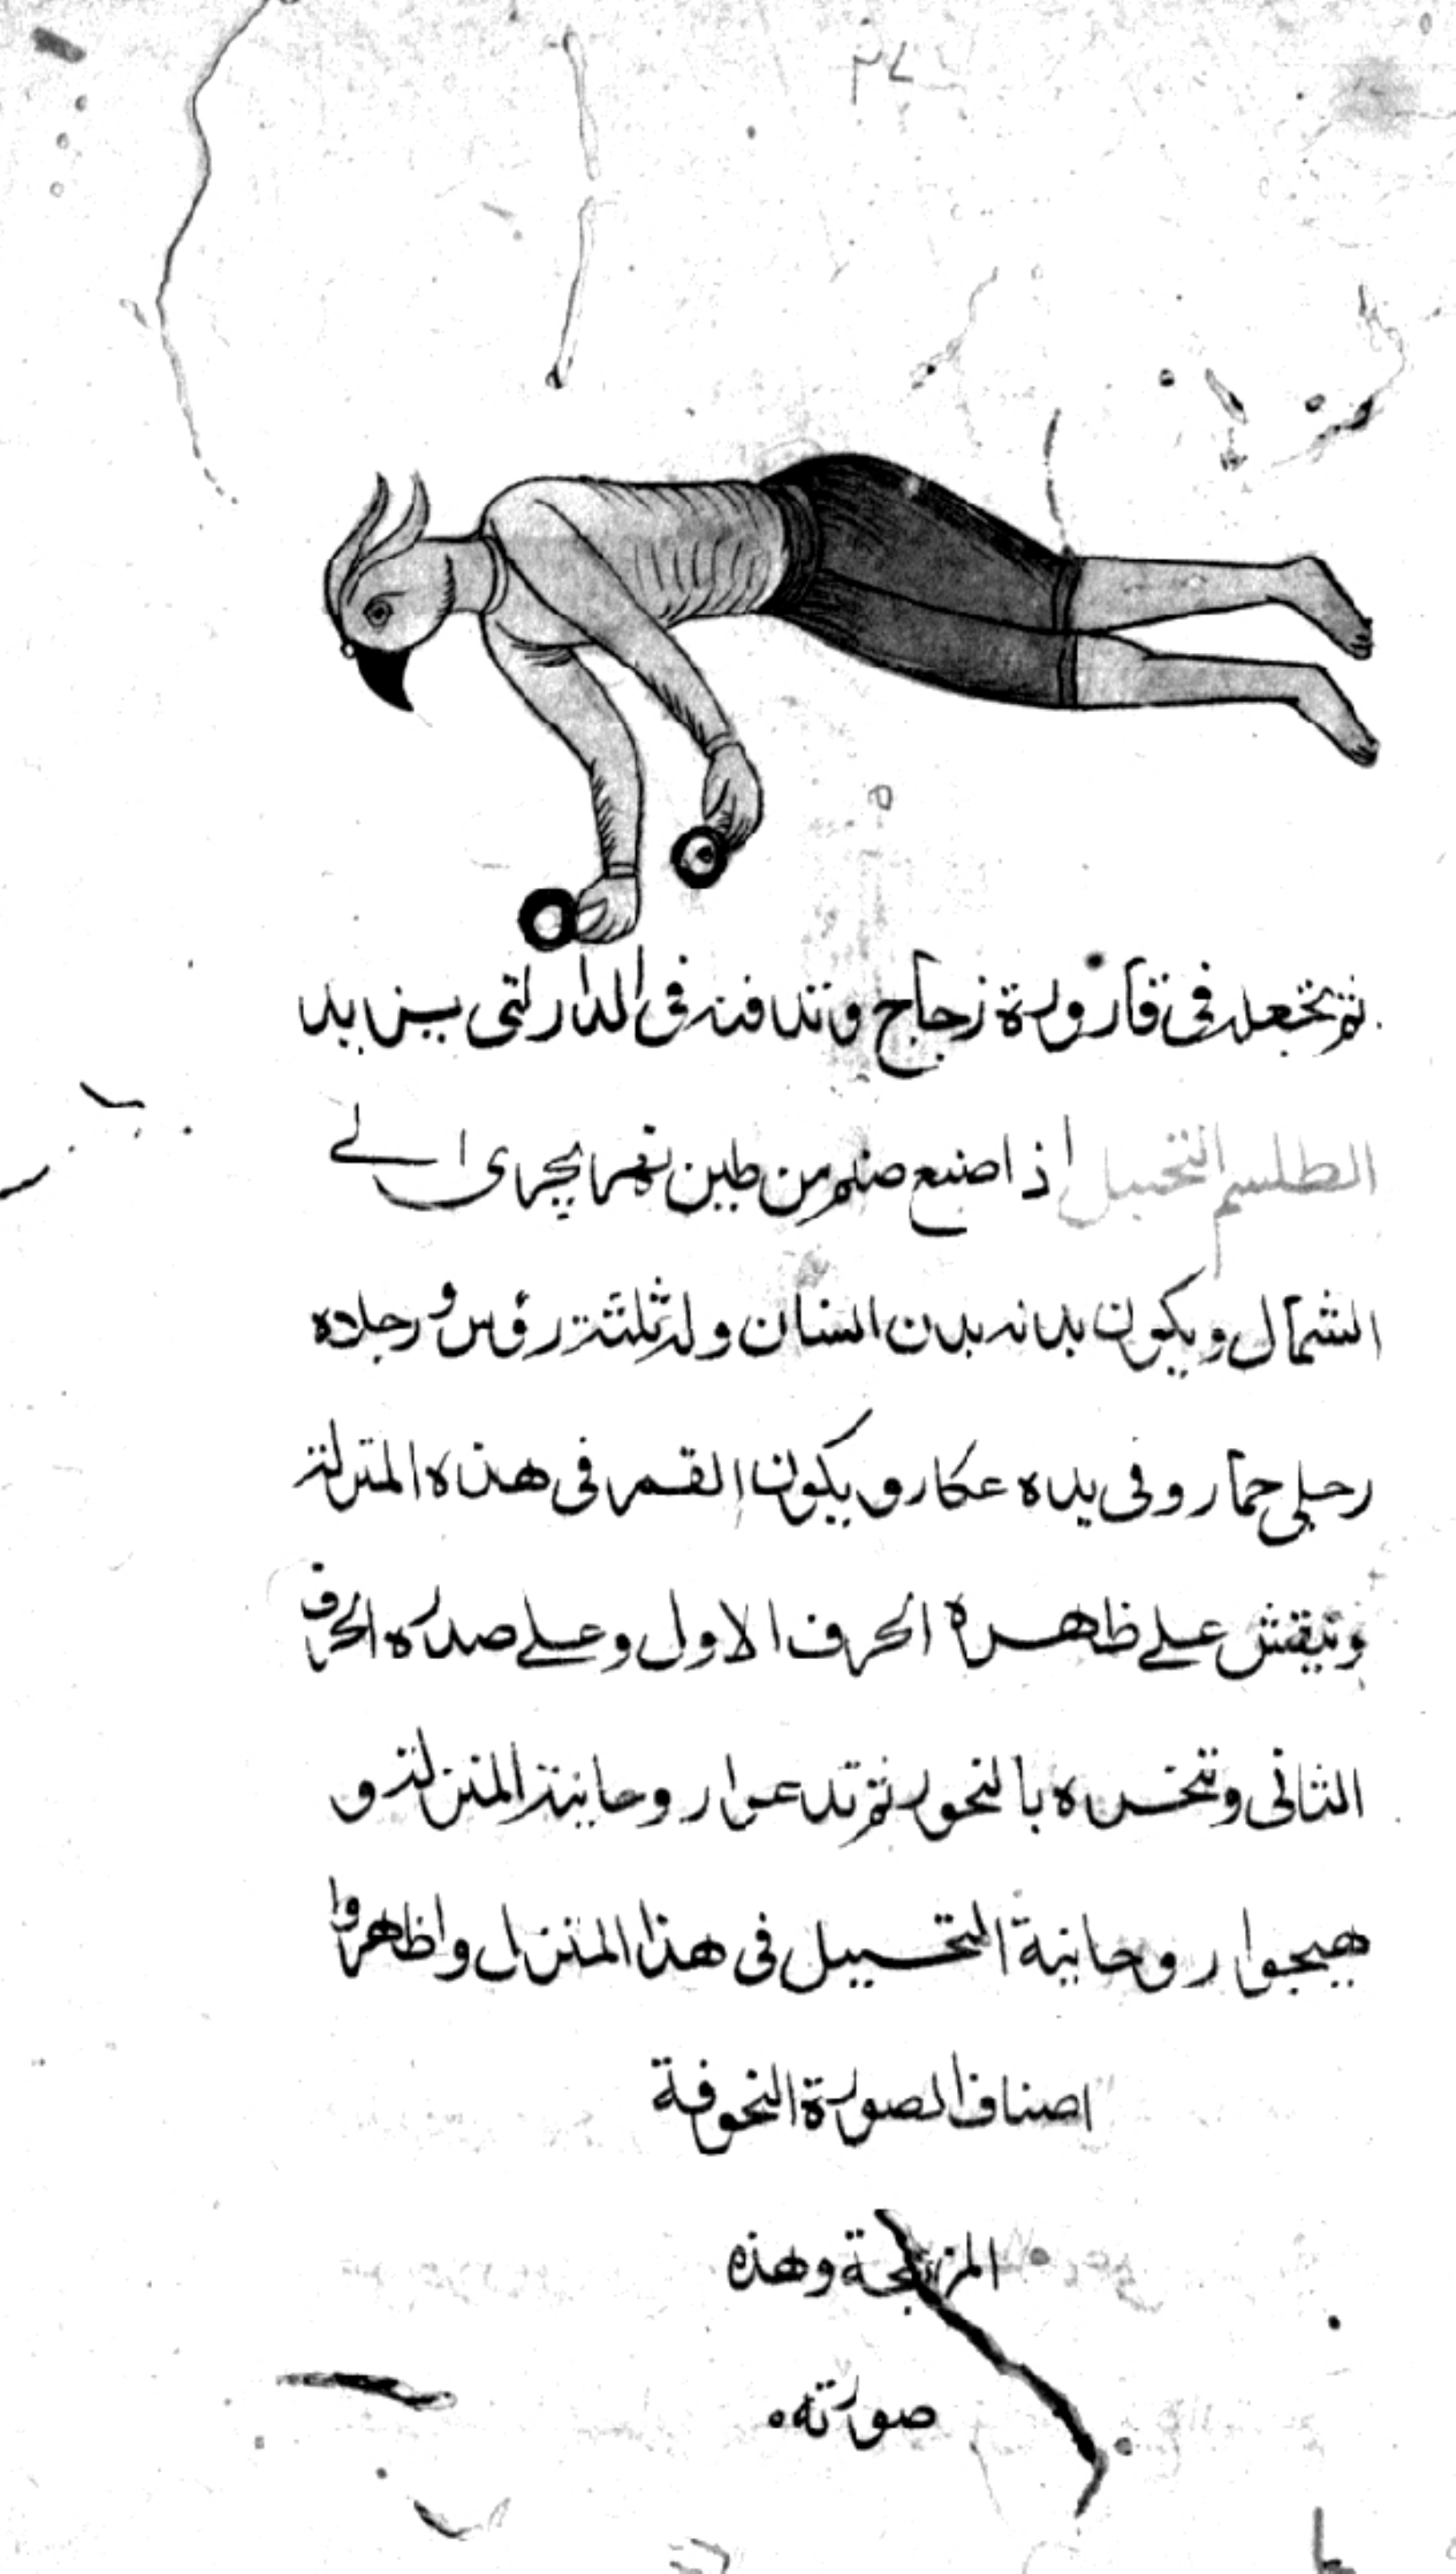 ٢٤
ثم تجعله فى قارورة زجاج وتدفنه فى الدار لتى يريد
الطلسم التخييل اذا صنع صنم من طين نهر يجرى الے
الشمال ويكون بدنه بدن انسان وله ثلثة رؤس ورجلاه
رجلى حمار وفى يده عكار ويكون القمر فى هذه المنزلة
وينقش على ظاهره الحرف الاول وعلى صدره الحرف
الثانى وتبخره بالبخور ثم تدعوا روحانية المنزلة و
هيجوا روحانية التخييل فى هذا المنزل واظهروا
اصناف الصورة المخوفة
المزعجة وهذه
صورته